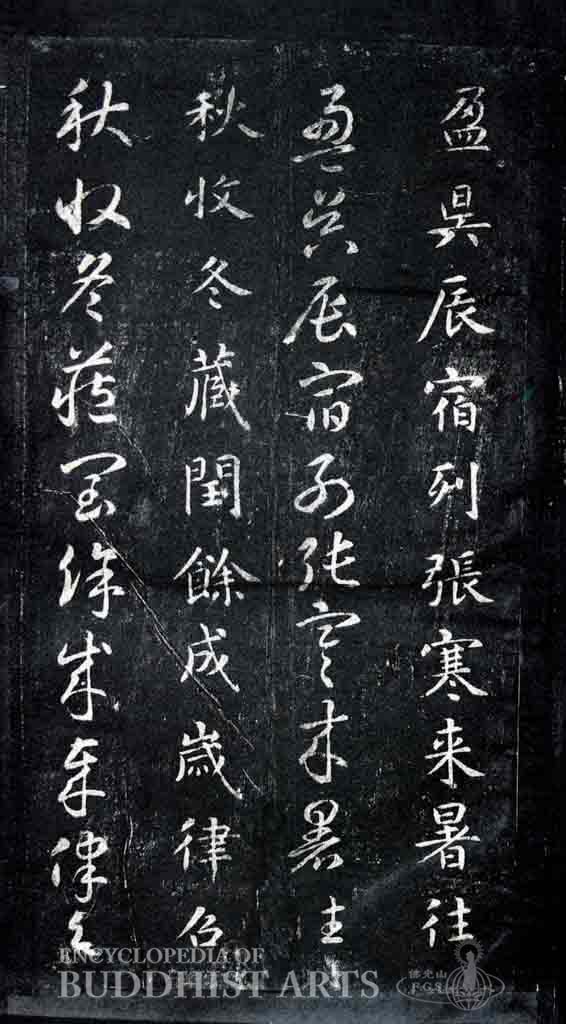 盈昃辰宿列張寒来暑往
盈昃辰宿列張寒来暑往
秋收冬藏閏餘成歲律召
秋收冬藏閏餘成歲律召
ENCYCLOPEDIA OF
BUDDHIST ARTS
佛光山
F.G.S.